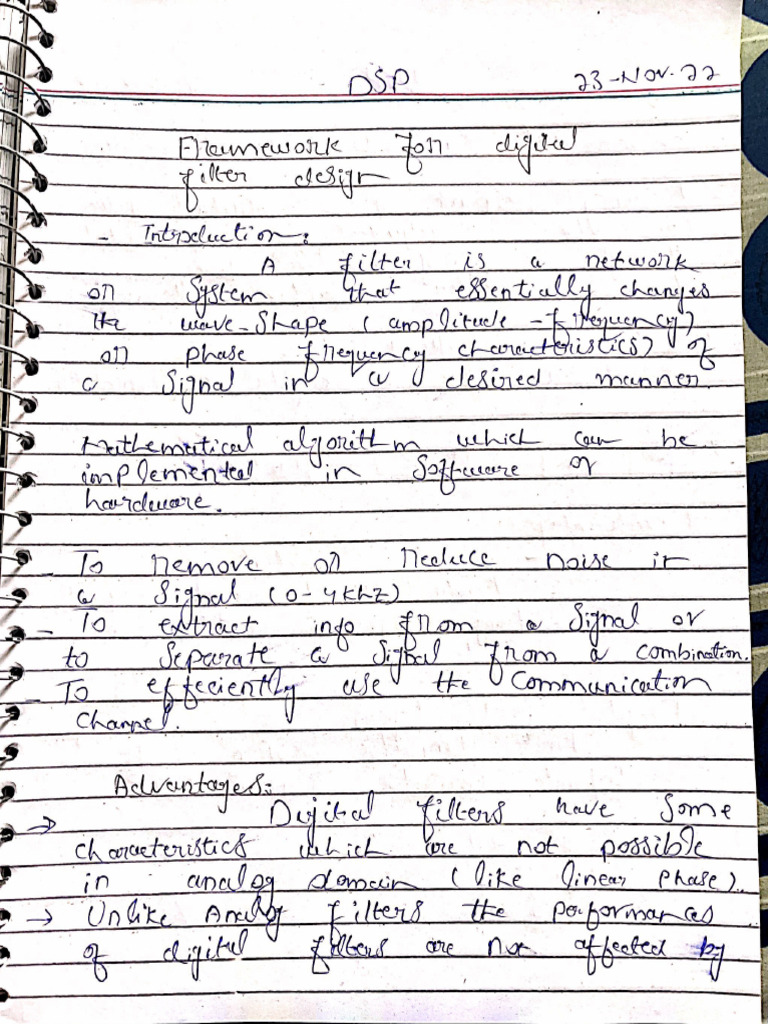 DSP 23-Nov-22
Framework for digital
filter design
- Introduction:
A filter is a network
or System that essentially changes
the wave-shape (amplitude-frequency)
or phase frequency characteristics) of
a Signal in a desired manner
Mathematical algorithm which can be
implemented in Software or
hardware.
- To remove or reduce noise in
a Signal (0-4khz)
- To extract info from a Signal or
to Separate a Signal from a combination.
- To effeciently use the Communication
Channel.
Advantages:
→ Digital filters have Some
characteristics which are not possible
in analog domain (like linear phase).
→ Unlike Analog filters the performances
of digital filters are not affected by